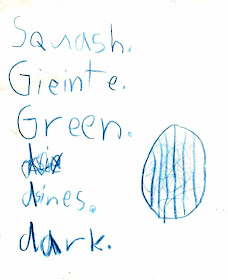 Squash.
Gieinte.
Green.
dines.
dark.